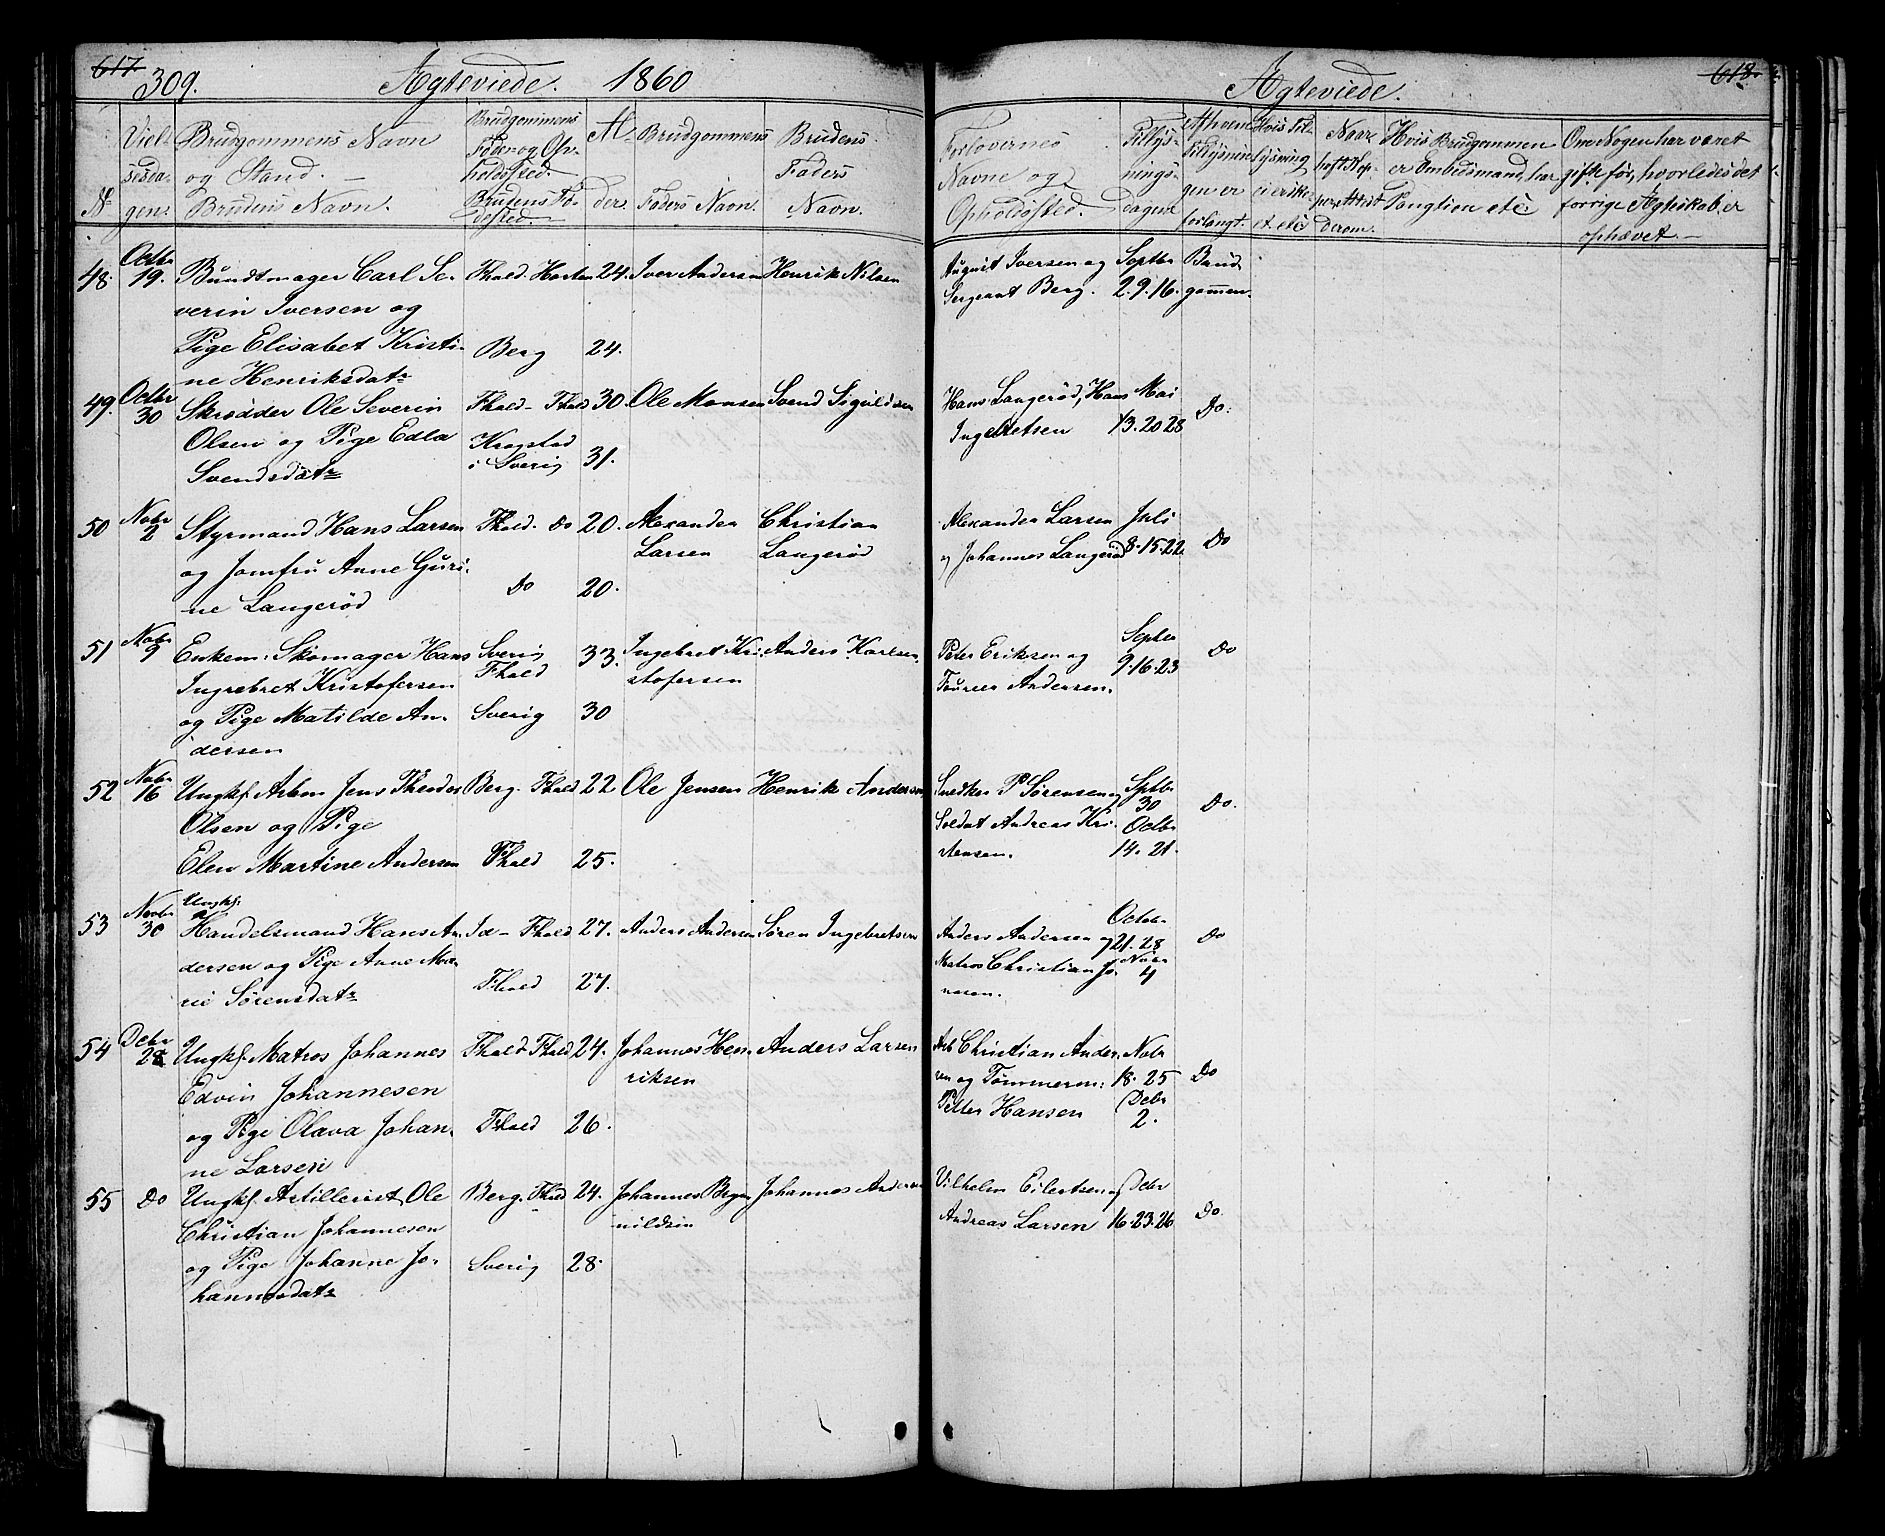 617.
309.
Ægteviede. 1860
№
Vielsesdagen.
Brudgommens Navn
og Stand.
Brudens Navn.
Brudgommens
Føde- og Opholdssted.
Brudens Fødested.
Alder.
Brudgommens
Faders Navn.
Brudens
Faders
Navn.
48. Octbr 19. Bundtmager Carl Se- Fhald. Horten 24. Iver Andersen Henrik Nilsen
verin Iversen og
Pige Elisabet Kristi- Berg 24.
ne Henriksdatr
49. Octbr 30 Skrædder Ole Severin Fhald - Fhald 30. Ole Monsen Svend Siguldsen
Olsen og Pige Edla Krogstad
i Sverig 31.
Svendsdatr
50 Novbr 2 Styrmand Hans Larsen Fhald. Do 20. Alexander Christian
og Jomfru Anne Guri- Larsen Langerød
ne Langerød Do 20.
51 Novbr 9 Enkem: Skomager Hans Sverig 33. Ingebret Kri- Anders Karlsen.
Ingrebret Kristofersen Fhald stofersen
og Pige Matilde An- Sverig 30
dersen
52 Novbr 16 Ungkf. Arbm Jens Theodor Berg. Fhald 22. Ole Jensen Henrik Andersen
Olsen og Pige
Elen Martine Andersen Fhald 25.
53 Novbr 30 Ungkf.
Handelsmand Hans An- Id - Fhald 27. Anders Andersen Søren Ingebretsen
dersen og Pige Anne Ma-
rie Sørensdatr Fhald 27.
54 Debr 28 Ungkf. Matros Johannes Fhald Fhald 24. Johannes Hen- Anders Larsen
Edvin Johannesen riksen
og Pige Olava Johan- Fhald 26.
ne Larsen
55 Do Ungkf. Artillerist Ole Berg. Fhald 24. Johannes Anders
Christian Johannesen
og Pige Johanne Jo- Sverig 28.
hannesdatr
618.
Ægteviede.
Forlovernes
Navne og
Opholdssted.
Tillys-
nings-
dagene
Af hvem
Tillysnin-
gen er
forlangt.
Hvis Til-
lysning
ei er ske-
et. etc
Naar
Attest
derom.
Hvis Brudgommen
er Ombudsmand, har
Fungtion etc.
Om Nogen har været
gift før, hvorledes det
forrige Ægteskab er
ophævet.
August Iversen og Septbr Brud-
Sergeant Berg. 2. 9. 16. gommen.
Hans Langerød, Hans Mai
Ingebretsen 13. 20 28 Do.
Alexander Larsen Juli
og Johannes Langerød 8-15-22. Do
Peter Eriksen og Septbr Do
Andersen. 9. 16. 23
Snedker P Sørensen og Sptbr 30 Do.
Soldat Andreas Kri- Octbr
stensen. 14. 21.
Anders Andersen og Octbr 21. 28 Do
Matros Christian Jo- Novbr 4
nasen.
Arb Christian Ander- Novbr
sen og Tømmerm: 18. 25 Do
Petter Hansen Debr
2.
Vilhelm Eilertsen og Debr
Andreas Larsen 16. 23. 26 Do.